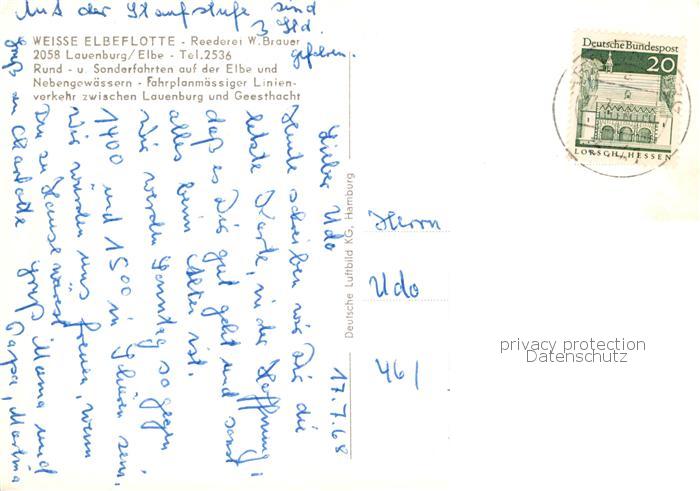 Auf der Staustufe sind
3 Std.
gefahren.
WEISSE ELBEFLOTTE - Reederei W. Brauer
2058 Lauenburg/Elbe - Tel. 2536
Rund- u. Sonderfahrten auf der Elbe und
Nebengewässern - Fahrplanmässiger Linien-
verkehr zwischen Lauenburg und Geesthacht
17.7.68
Lieber Udo
Heute schreiben wir Dir die
letzte Karte, in der Hoffnung,
daß es Dir gut geht und sonst
alles beim Alten ist.
Wir werden Sonntag so gegen
1400 und 1500 in sein.
Wir würden uns freuen, wenn
Du zu Hause wärest.
Gruß Mama und
Papa, Martina
Gruß an Charlotte
Deutsche Luftbild KG, Hamburg
Deutsche Bundespost
20
LORSCH/HESSEN
Herrn
Udo
46
privacy protection
Datenschutz